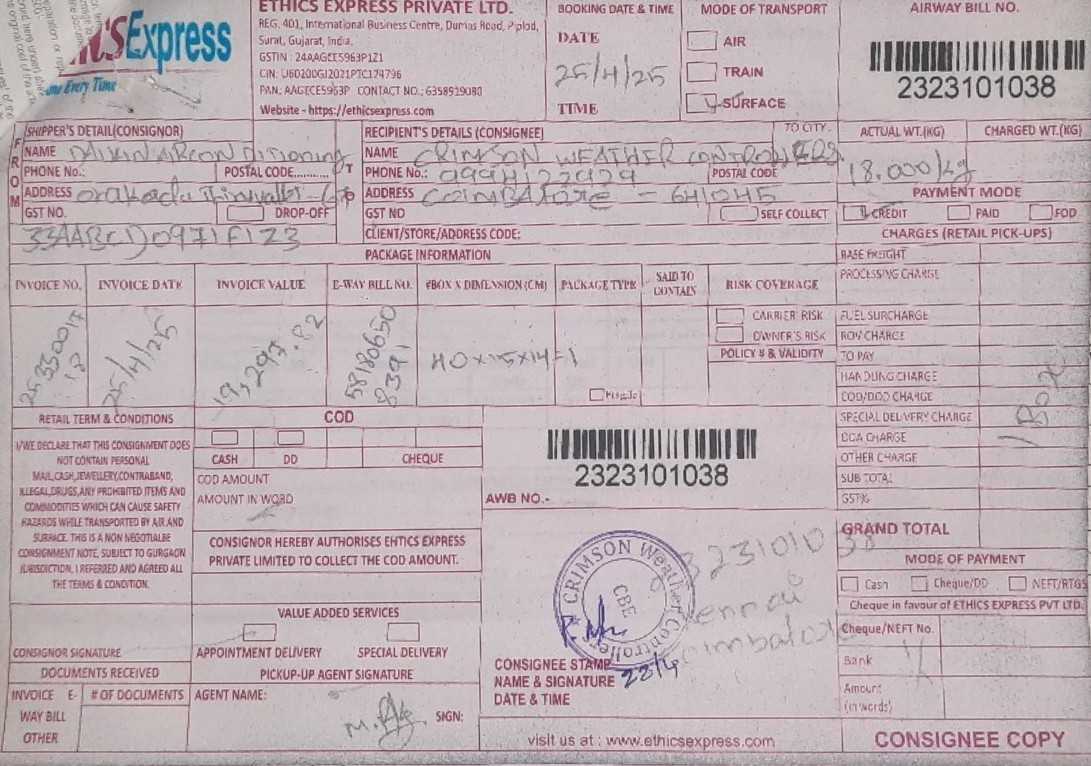 ETHICS EXPRESS PRIVATE LTD.
REG. 401, International Business Centre, Dumas Road, Piplod,
Surat, Gujarat, India.
GSTIN : 24AAGEE5963P1Z1
CIN: U60200GJ2021PTC174796
PAN: AAGECE5963P CONTACT NO.: 6358919080
Website - https://ethicsexpress.com
Express
Every Time
BOOKING DATE & TIME
DATE
25/4/25
TIME
MODE OF TRANSPORT
AIR
TRAIN
SURFACE
AIRWAY BILL NO.
2323101038
FROM
SHIPPER'S DETAIL(CONSIGNOR)
NAME DAIKIN AIRCON Ditioning
PHONE No.: POSTAL CODE
ADDRESS
GST NO. DROP-OFF
33AABCD0971F1Z3
RECIPIENT'S DETAILS (CONSIGNEE) TO CITY
NAME CRIMSON WEATHER CONTROLLERS
PHONE No.: 9994122929 POSTAL CODE
ADDRESS COIMBATORE - 641045
GST NO SELF COLLECT
CLIENT/STORE/ADDRESS CODE:
ACTUAL WT.(KG) CHARGED WT.(KG)
18.000/kg
PAYMENT MODE
CREDIT PAID FOD
CHARGES (RETAIL PICK-UPS)
BASE FREIGHT
PROCESSING CHARGE
FUEL SURCHARGE
ROV CHARGE
TO PAY
HANDLING CHARGE
COD/DOD CHARGE
SPECIAL DELIVERY CHARGE
OCA CHARGE
OTHER CHARGE
SUB TOTAL
GST%
GRAND TOTAL
PACKAGE INFORMATION
INVOICE NO. INVOICE DATE INVOICE VALUE E-WAY BILL NO. #BOX X DIMENSION (CM) PACKAGE TYPE SAID TO CONTAIN RISK COVERAGE
25330017
18
25/4/25
19,297.82
58180650
8391
40x35x14=1
Fragile
CARRIER RISK
OWNER'S RISK
POLICY # & VALIDITY
RETAIL TERM & CONDITIONS
I/WE DECLARE THAT THIS CONSIGNMENT DOES
NOT CONTAIN PERSONAL
MAIL,CASH,JEWELLERY,CONTRABAND,
ILLEGAL,DRUGS,ANY PROHIBITED ITEMS AND
COMMODITIES WHICH CAN CAUSE SAFETY
HAZARDS WHILE TRANSPORTED BY AIR AND
SURFACE. THIS IS A NON NEGOTIALBE
CONSIGNMENT NOTE, SUBJECT TO GURGAON
JURISDICTION, I REFERRED AND AGREED ALL
THE TERMS & CONDITION.
CONSIGNOR SIGNATURE
COD
CASH DD CHEQUE
COD AMOUNT
AMOUNT IN WORD
CONSIGNOR HEREBY AUTHORISES EHTICS EXPRESS
PRIVATE LIMITED TO COLLECT THE COD AMOUNT.
VALUE ADDED SERVICES
APPOINTMENT DELIVERY SPECIAL DELIVERY
2323101038
AWB NO.-
CRIMSON Weather Controllers
CBE
CONSIGNEE STAMP
NAME & SIGNATURE 28/4
DATE & TIME
MODE OF PAYMENT
Cash Cheque/DD NEFT/RTGS
Cheque in favour of ETHICS EXPRESS PVT LTD.
Cheque/NEFT No.
Bank
Amount
(in words)
DOCUMENTS RECEIVED
INVOICE E- # OF DOCUMENTS
WAY BILL
OTHER
PICKUP-UP AGENT SIGNATURE
AGENT NAME:
SIGN:
visit us at : www.ethicsexpress.com
CONSIGNEE COPY